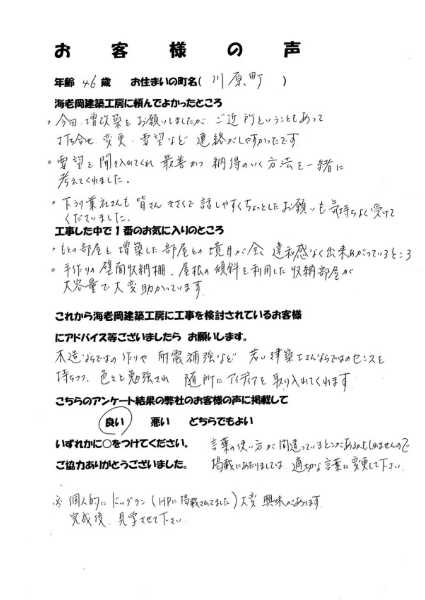 お客様の声
年齢 46 歳 お住まいの町名( 川原町 )
海老岡建築工房に頼んでよかったところ
・今回、増改築をお願いしましたが、ご近所ということもあって
打合せ、変更、要望など連絡がしやすかったです
・要望を聞き入れてくれ最善かつ納得のいく方法を一緒に
考えてくれました。
・下請け業社さんも皆さん、きさくで話しやすくちょっとしたお願いも気持ちよく受けて
くださいました。
工事した中で1番のお気に入りのところ
・もとの部屋と増築した部屋との境目が全く違和感なく出来あがっているところ
・手作りの壁面収納棚、屋根の傾斜を利用した収納部屋が
大容量で大変助かっています
これから海老岡建築工房に工事を検討されているお客様
にアドバイス等ございましたら お願いします。
木造ならではの作りや耐震補強など 若い建築士さんならではのセンスを
持ちつつ、色々と勉強され 随所にアイディアを取り入れてくれます
こちらのアンケート結果の弊社のお客様の声に掲載して
良い 悪い どちらでもよい
いずれかに○をつけてください。
ご協力ありがとうございました。
言葉の使い方が間違っているところがあるかもしれませんので
掲載にあたりましては 適切な言葉に変更して下さい
※ 個人的にドッグラン(HPに掲載されてました)大変興味があります
完成後、見学させて下さい